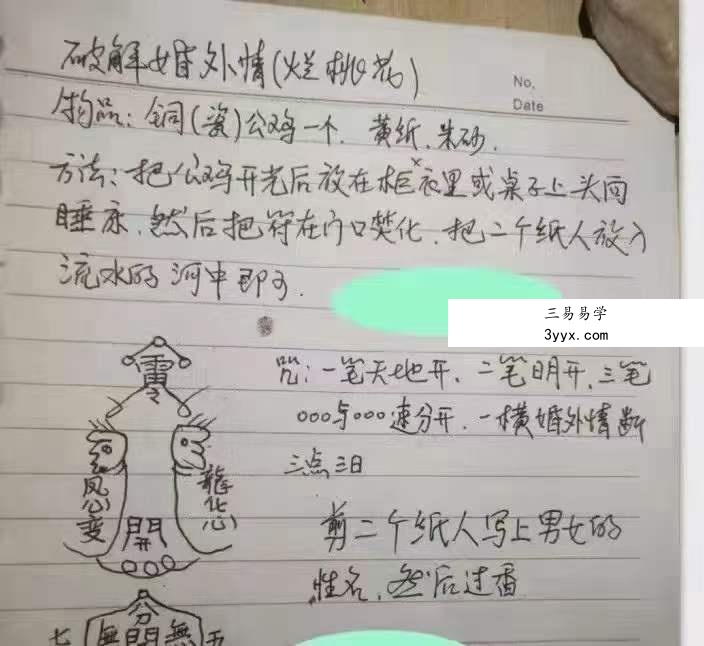 破解婚外情(烂桃花)
No.
Date
物品：铜(瓷)公鸡一个．黄纸．朱砂．
方法：把公鸡开光后放在柜衣里或桌子上头向
睡床．然后把符在门口焚化．把二个纸人放入
流水的河中即可．
三易易学
3yyx.com
咒：一笔天地开．二笔明开．三笔
○○○与○○○速分开．一横婚外情断
三点三日
剪二个纸人写上男女的
性名．然后过香
雷
令
凤心变
龍化心
開
分
七 無開無 五